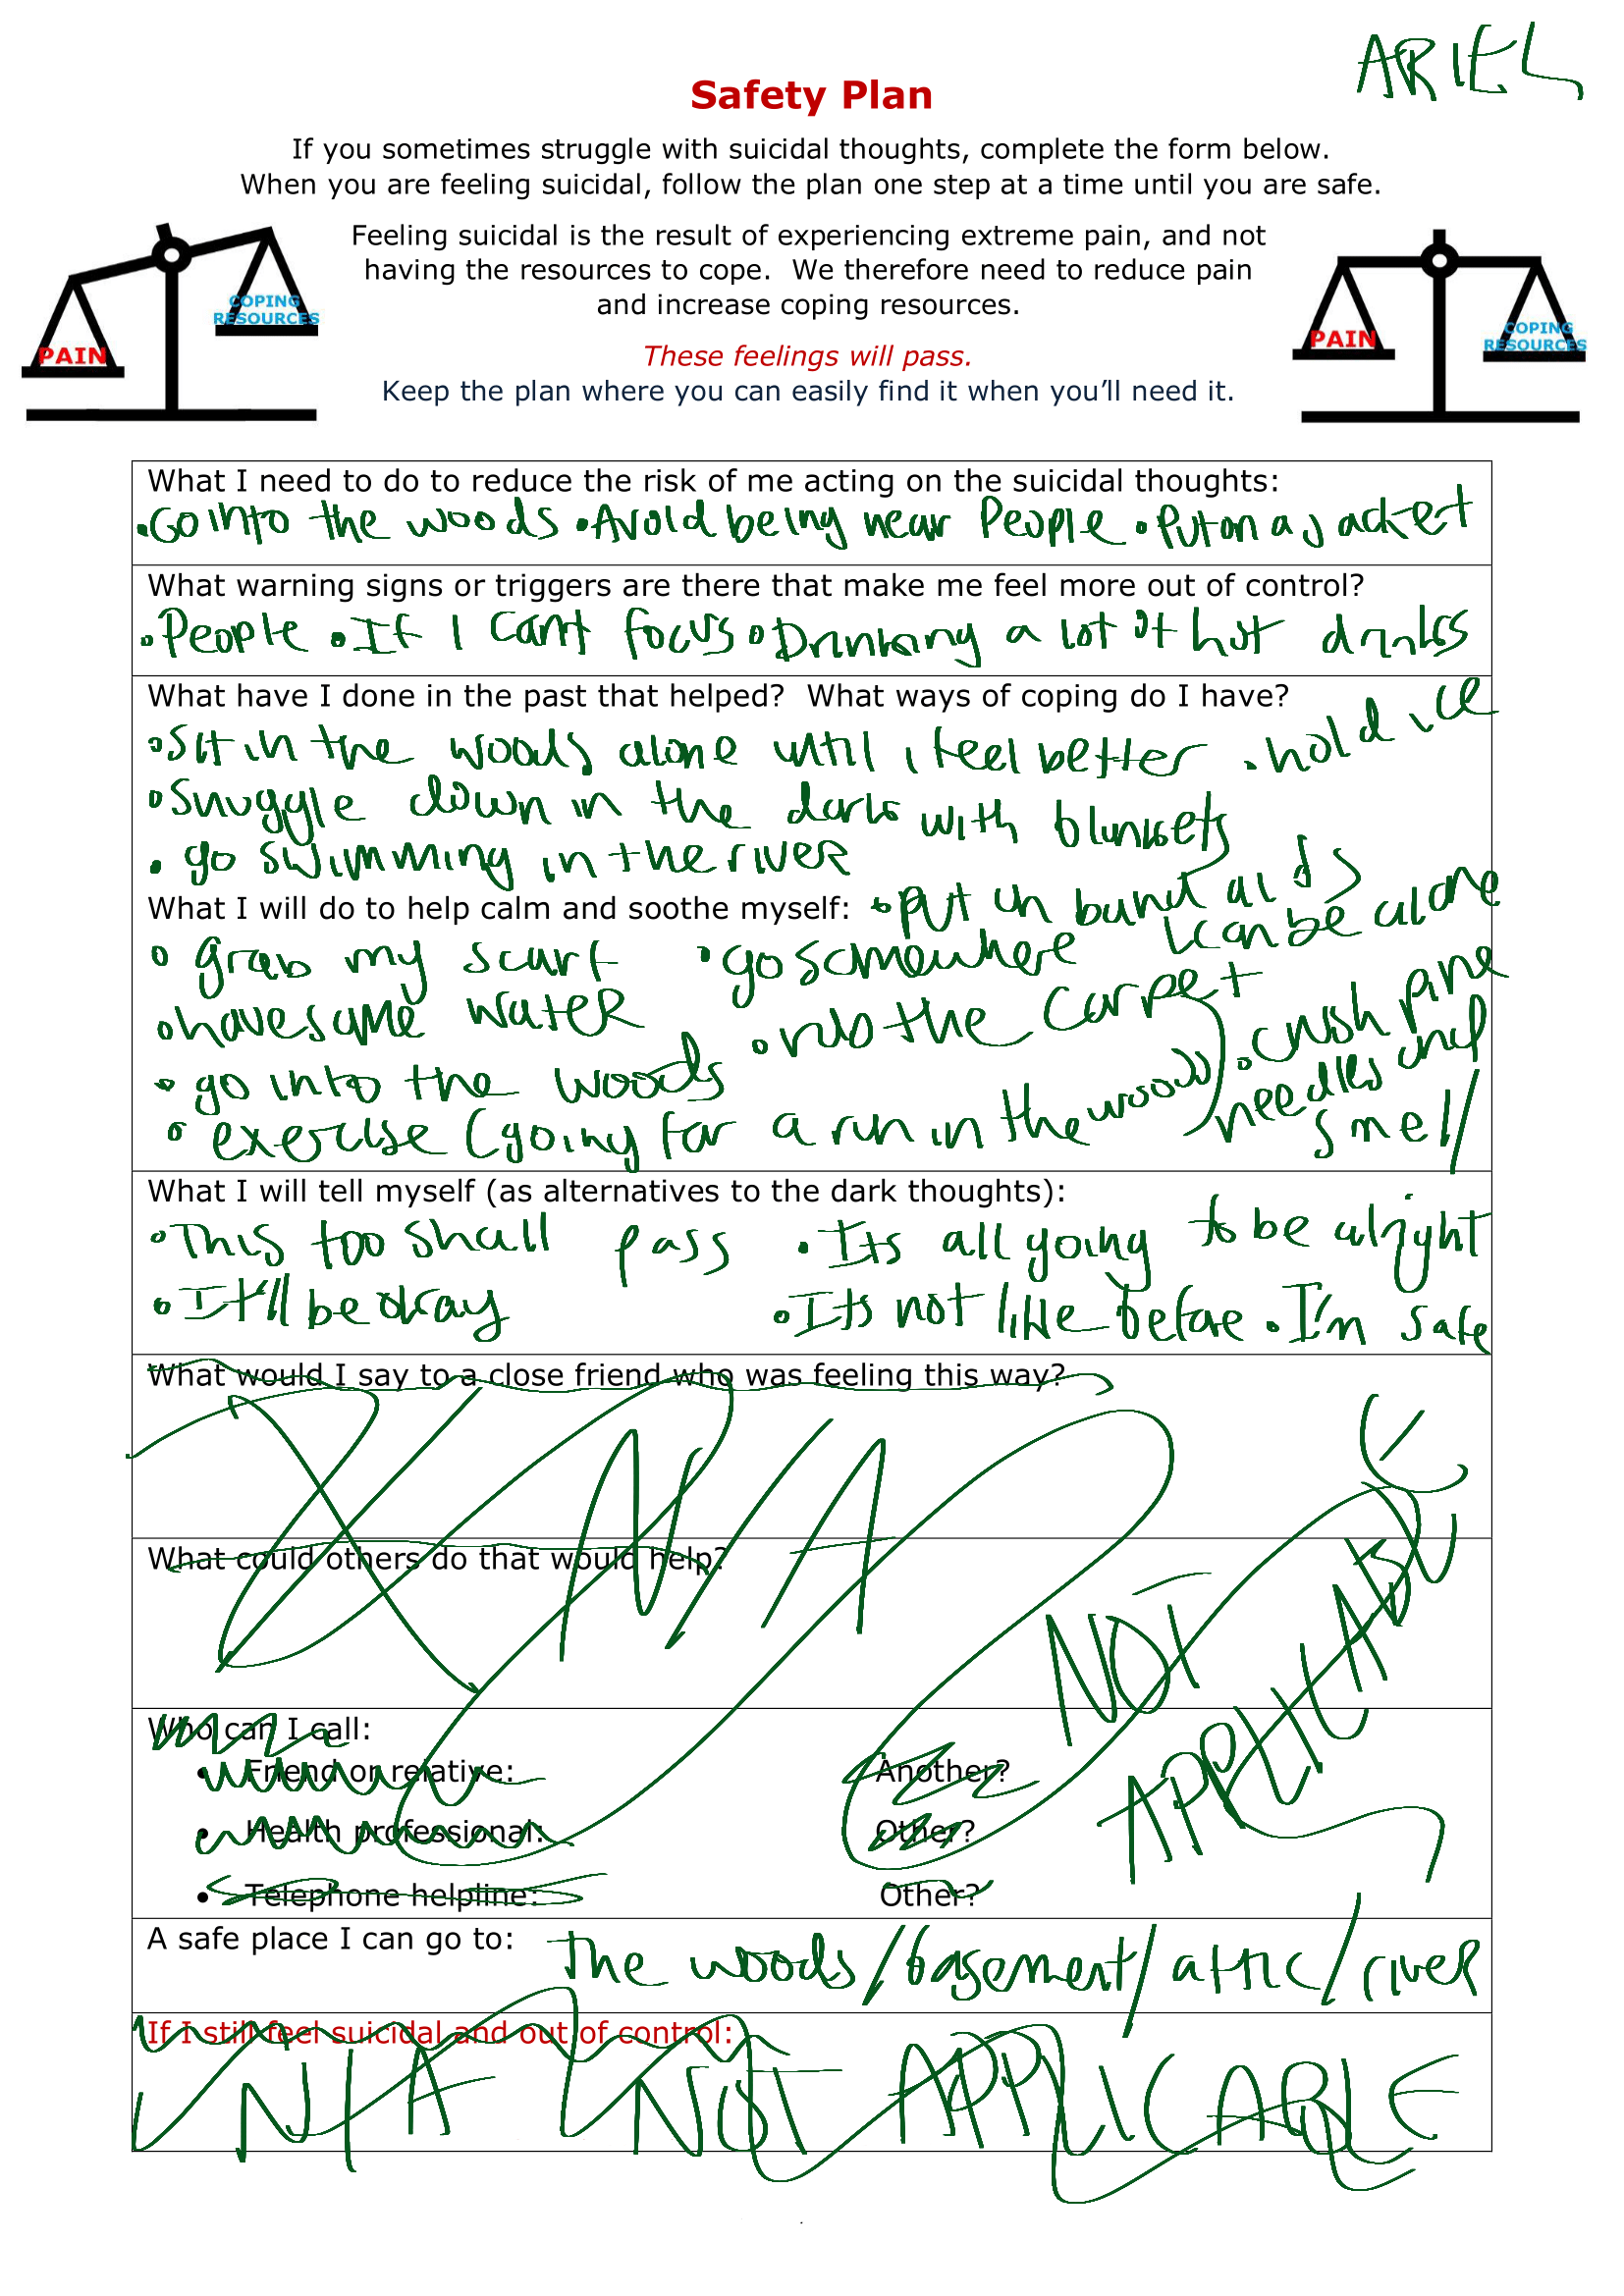 ARIEL
Safety Plan
If you sometimes struggle with suicidal thoughts, complete the form below.
When you are feeling suicidal, follow the plan one step at a time until you are safe.
Feeling suicidal is the result of experiencing extreme pain, and not
having the resources to cope. We therefore need to reduce pain
and increase coping resources.
These feelings will pass.
Keep the plan where you can easily find it when you’ll need it.
PAIN
COPING
RESOURCES
PAIN
COPING
RESOURCES
What I need to do to reduce the risk of me acting on the suicidal thoughts:
•Go into the woods •Avoid being near People •Put on a jacket
What warning signs or triggers are there that make me feel more out of control?
•People •If I cant focus •Drinking a lot of hot drinks
What have I done in the past that helped? What ways of coping do I have?
•Sit in the woods alone until i feel better •hold ice
•Snuggle down in the dark with blankets
•go swimming in the river
What I will do to help calm and soothe myself: •Put on band aids
•grab my scarf •go somewhere I can be alone
•have some water •rub the carpet •crush pine needles and smell
•go into the woods
•exercise (going for a run in the woods)
What I will tell myself (as alternatives to the dark thoughts):
•This too shall pass •Its all going to be alright
•It'll be okay •Its not like before •I'm safe
What would I say to a close friend who was feeling this way?
N/A
What could others do that would help?
NOT APPLICABLE
Who can I call:
• Friend or relative: Another?
• Health professional: Other?
• Telephone helpline: Other?
A safe place I can go to: The woods/basement/attic/river
If I still feel suicidal and out of control:
N/A NOT APPLICABLE